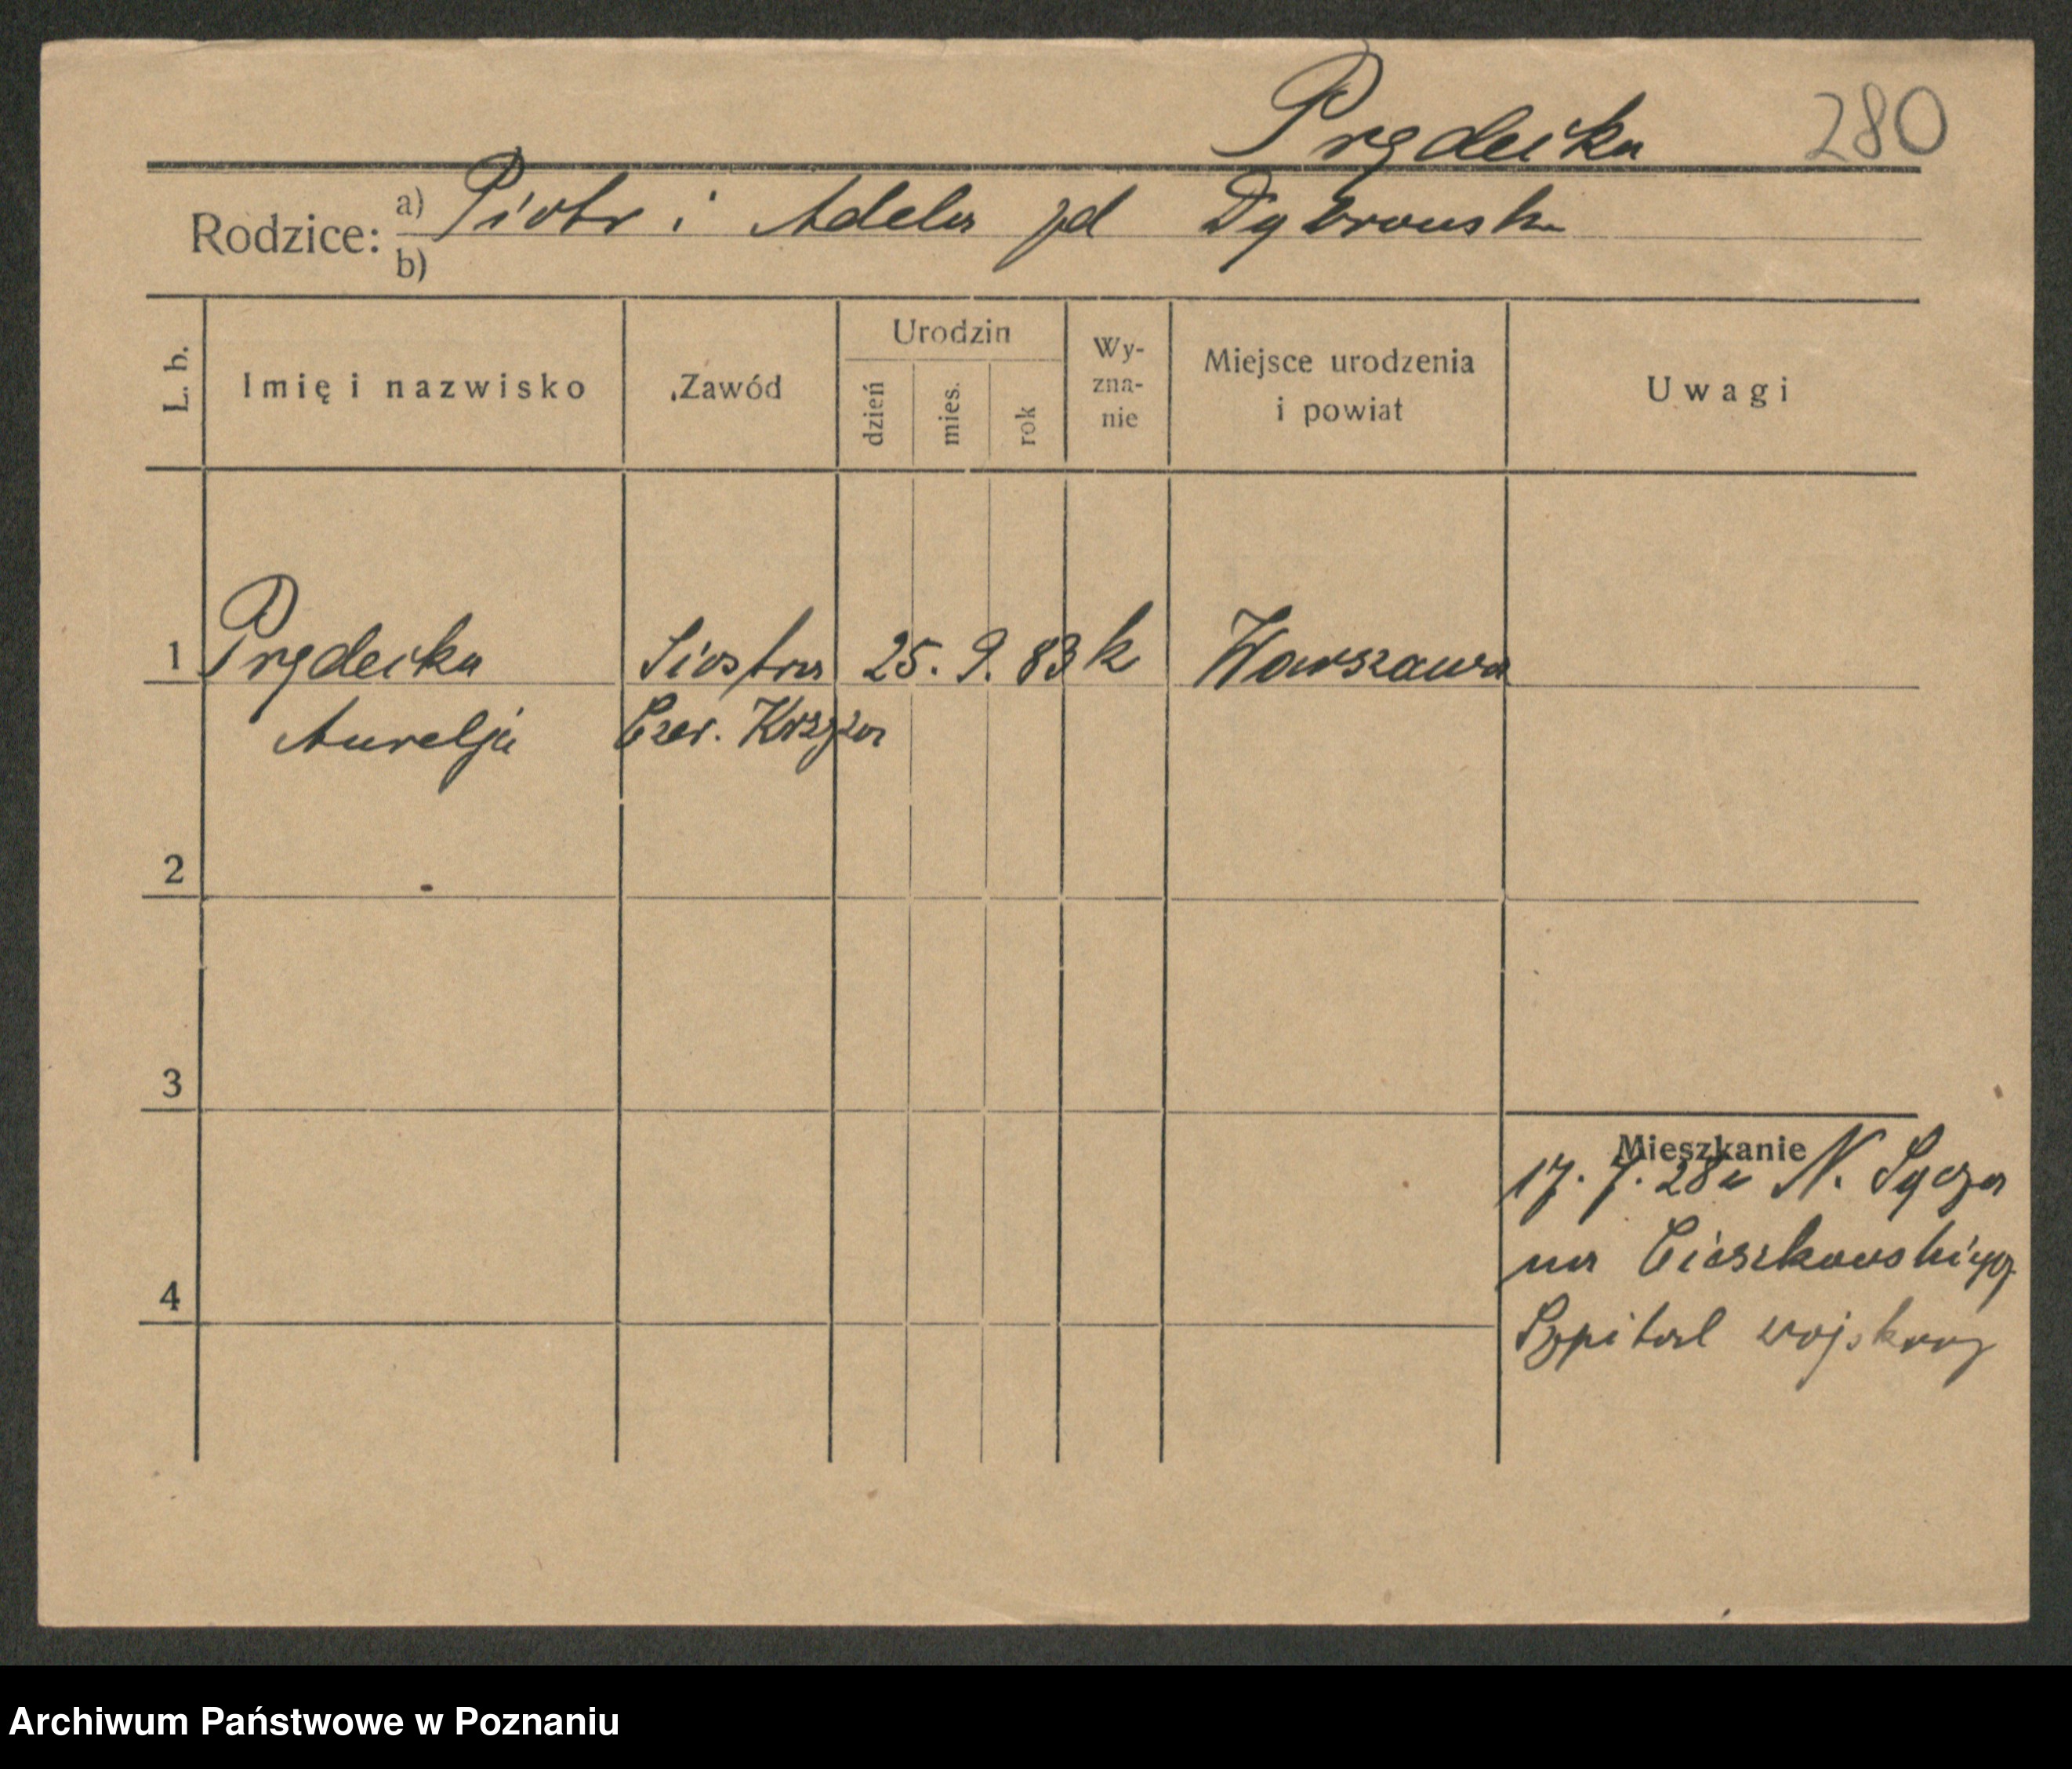 Prądecka 280
Rodzice: a) Piotr i Adela zd Dąbrowska
b)
L. b. Imię i nazwisko Zawód Urodzin dzień mies. rok Wy-zna-nie Miejsce urodzenia i powiat Uwagi
1 Prądecka Siostra 25. 9. 83 k Warszawa
Aurelja Czer. Krzyża
2
3
Mieszkanie
17. 7. 28 z N. Sącza
na
4
Szpital wojskowy
Archiwum Państwowe w Poznaniu